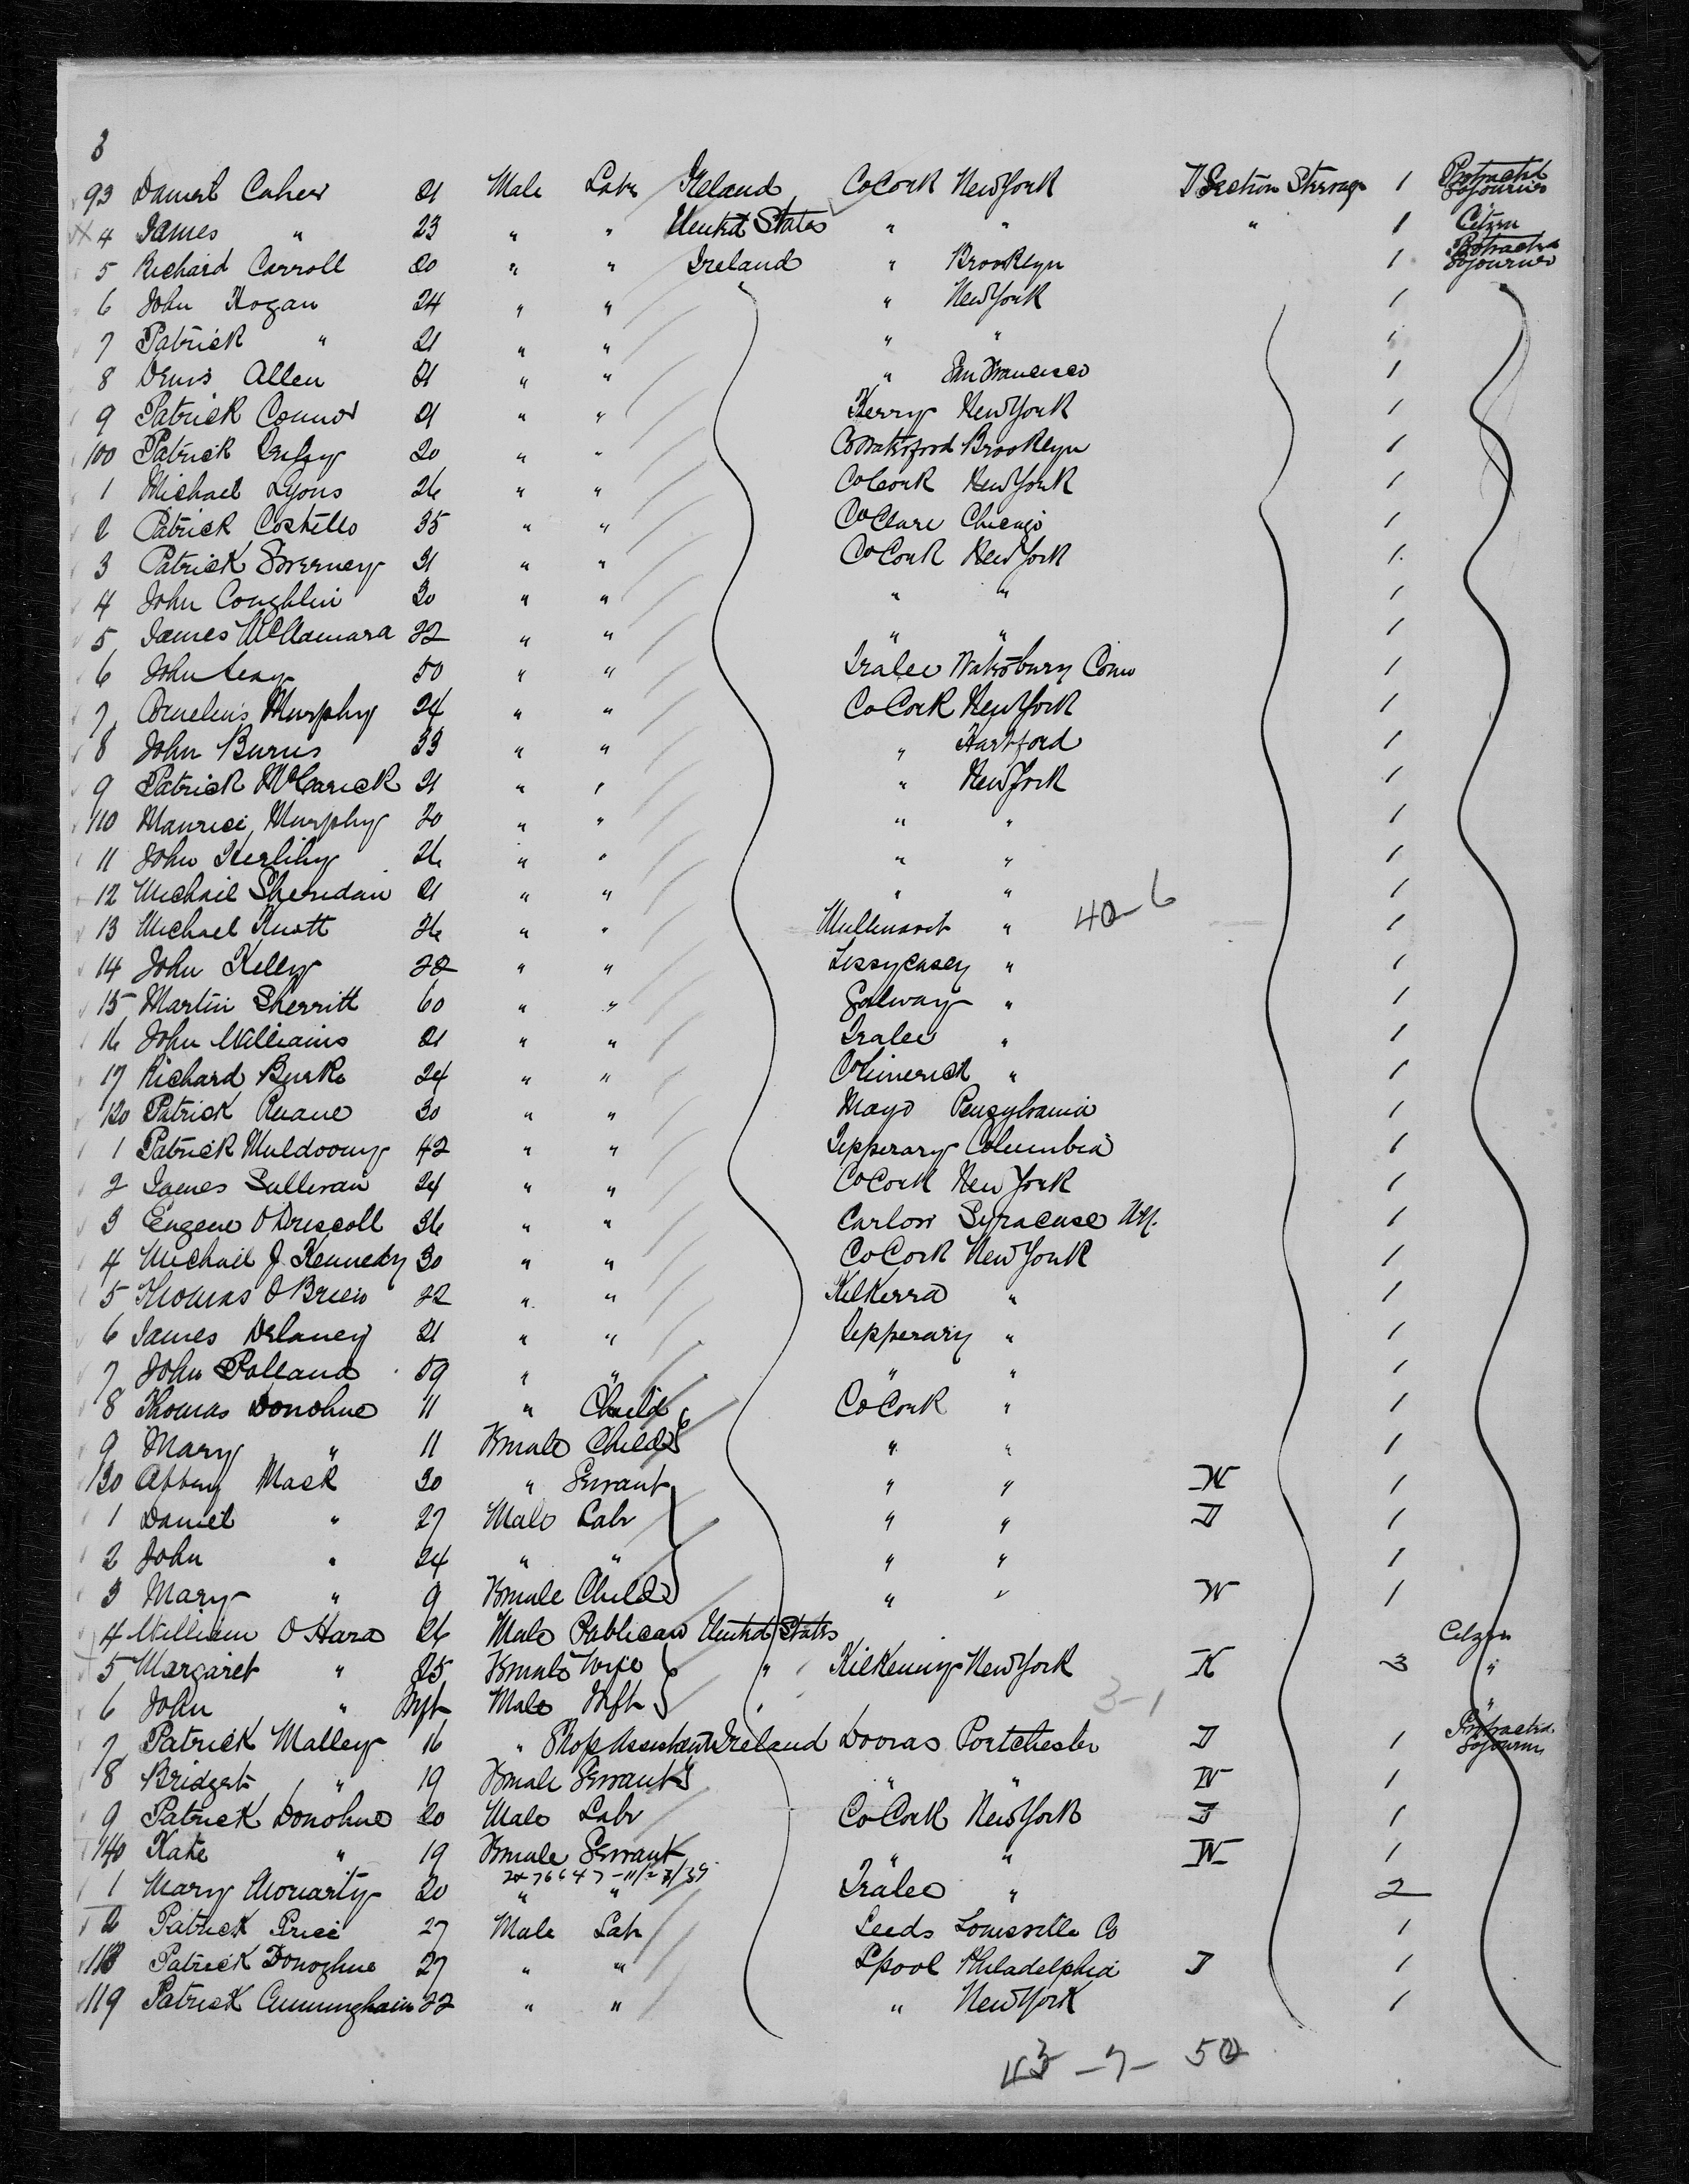 3
93 Daniel Cahen 21 Male Labr Ireland Co Cork New York D Section Steerage 1 Protracted Sojourner
4 James " 23 " " United States " " " 1 Citzn
5 Richard Carroll 20 " " Ireland " Brooklyn 1 Protracted Sojourner
6 John Hogan 24 " " " New York 1
7 Patrick " 21 " " " " 1
8 Denis Allen 21 " " " San Francisco 1
9 Patrick Connor 21 " " Kerry New York 1
100 Patrick 20 " " Co Waterford Brooklyn 1
1 Michael Lyons 26 " " Co Cork New York 1
2 Patrick Costello 35 " " Co Clare Chicago 1
3 Patrick Sweeney 21 " " Co Cork New York 1
4 John Coughlin 30 " " " " 1
5 James McNamara 22 " " " " 1
6 John Leay 50 " " Tralee Watrsbury Conn 1
7 Cornelius Murphy 24 " " Co Cork New York 1
8 John Burns 33 " " " Hartford 1
9 Patrick McCarick 21 " " " New York 1
110 Maurice Murphy 20 " " " " 1
11 John Herlihy 26 " " " " 1
12 Michail Sheridan 21 " " " " 1
13 Michael Knott 26 " " Mullinavat " 40-6 1
14 John Kelly 22 " " Lissycasey " 1
15 Martin Sherritt 60 " " Galway " 1
16 John Williams 21 " " Tralee " 1
17 Richard Burke 24 " " Co Limerick " 1
120 Patrick Ruane 30 " " Mayo Pensylvania 1
1 Patrick Muldoony 42 " " Tipperary Columbia 1
2 James Sullivan 24 " " Co Cork New York 1
3 Eugene O Driscoll 36 " " Carlow Syracuse NY. 1
4 Michail J. Kennedy 30 " " Co Cork New York 1
5 Thomas O Brien 22 " " Kilkerra " 1
6 James Delaney 21 " " Tipperary " 1
7 John Polland 59 " " " " 1
8 Thomas Donohue 11 " Child Co Cork " 1
9 Mary " 11 Female Child " " 1
130 Abbey Mack 30 " Servant " " W 1
1 Daniel " 27 Male Labr " " D 1
2 John " 24 " " " " 1
3 Mary " 9 Female Child " " W 1
4 William O Hara 26 Male Publican United States Citzn
5 Margaret " 25 Female Wife " Kilkenny New York K 3 "
6 John " Inft Male Inft " 3-1 "
7 Patrick Malley 16 " Shop Assistant Ireland Dooras Portchester D 1 Protracted Sojourner
8 Bridget " 19 Female Servant " " W 1
9 Patrick Donohue 20 Male Labr Co Cork New York D 1
140 Kate " 19 Female Servant " " W 1
1 Mary Moriarty 20 " " Tralee " 2
2 Patrick Price 27 Male Labr Leeds Louisville Co 1
118 Patrick Donoghue 27 " " Lpool Philadelphia D 1
119 Patrick Cunningham 22 " " " New York 1
43 - 7 - 50